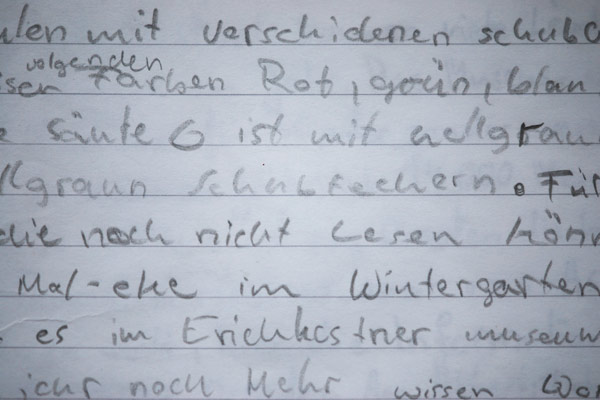 ulen mit verschidenen schubl
volgenden
sen Farben Rot, grün, blau
e Säule 6 ist mit hellgrau
llgraun Schubfechern. Für
die noch nicht Lesen könn
Mal-eke im Wintergarten
es im Erichkestner museum
noch Mehr wissen Wo